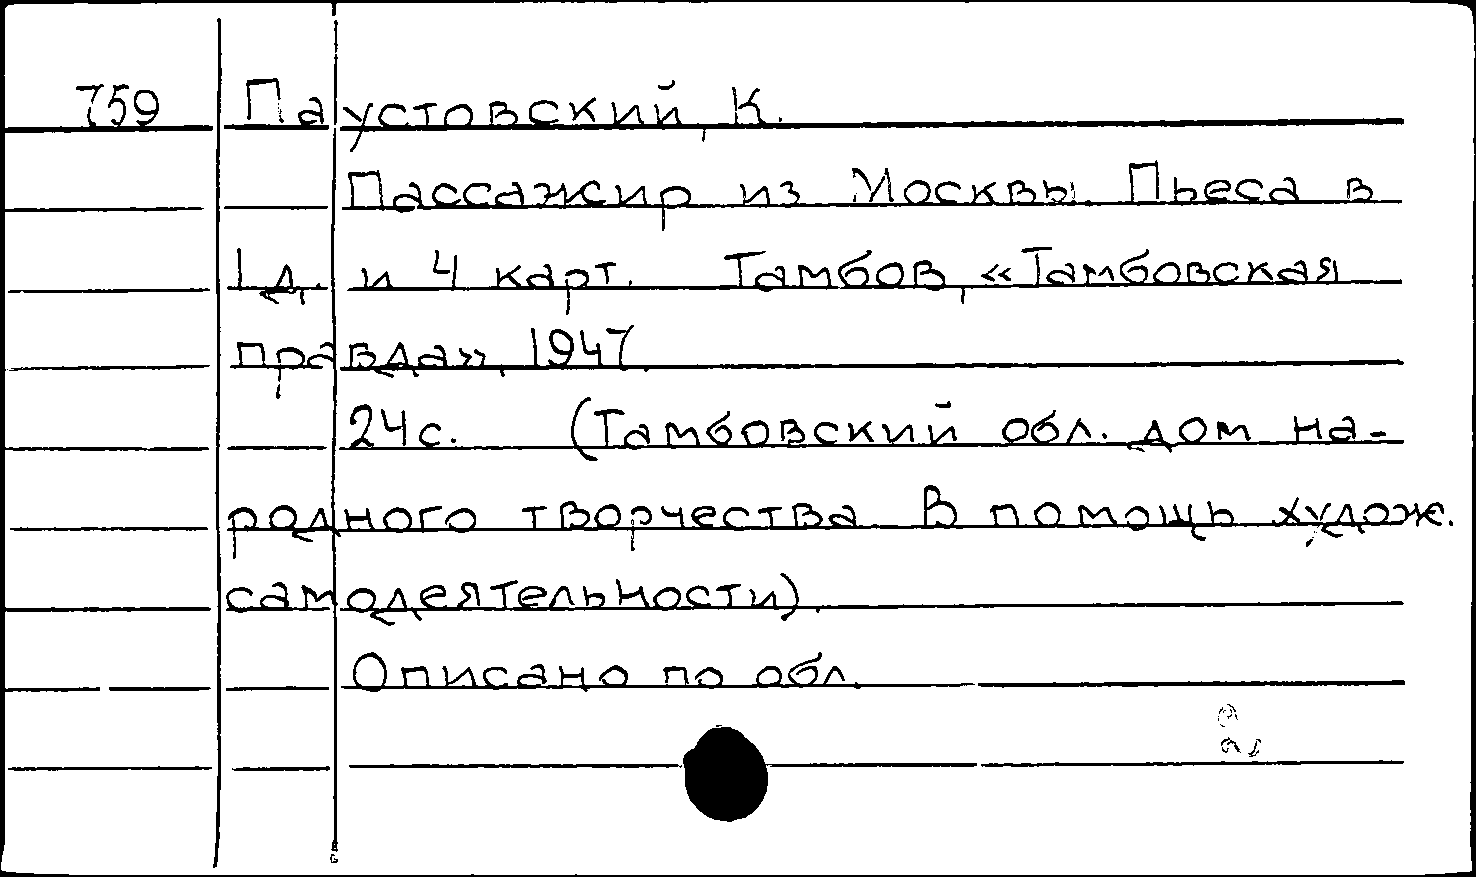 759 Паустовский, К.
Пассажир из Москвы. Пьеса в
1 д. и 4 карт. Тамбов, «Тамбовская
правда», 1947.
24 с. (Тамбовский обл. дом на-
родного творчества В помощь худож.
самодеятельности).
Описано по обл.